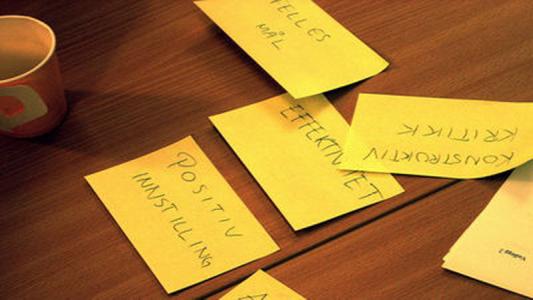 ELLES
MÅL
EFFEKTIVITET
KONSTRUKTIV
KRITIKK
POSITIV
INNSTILLING